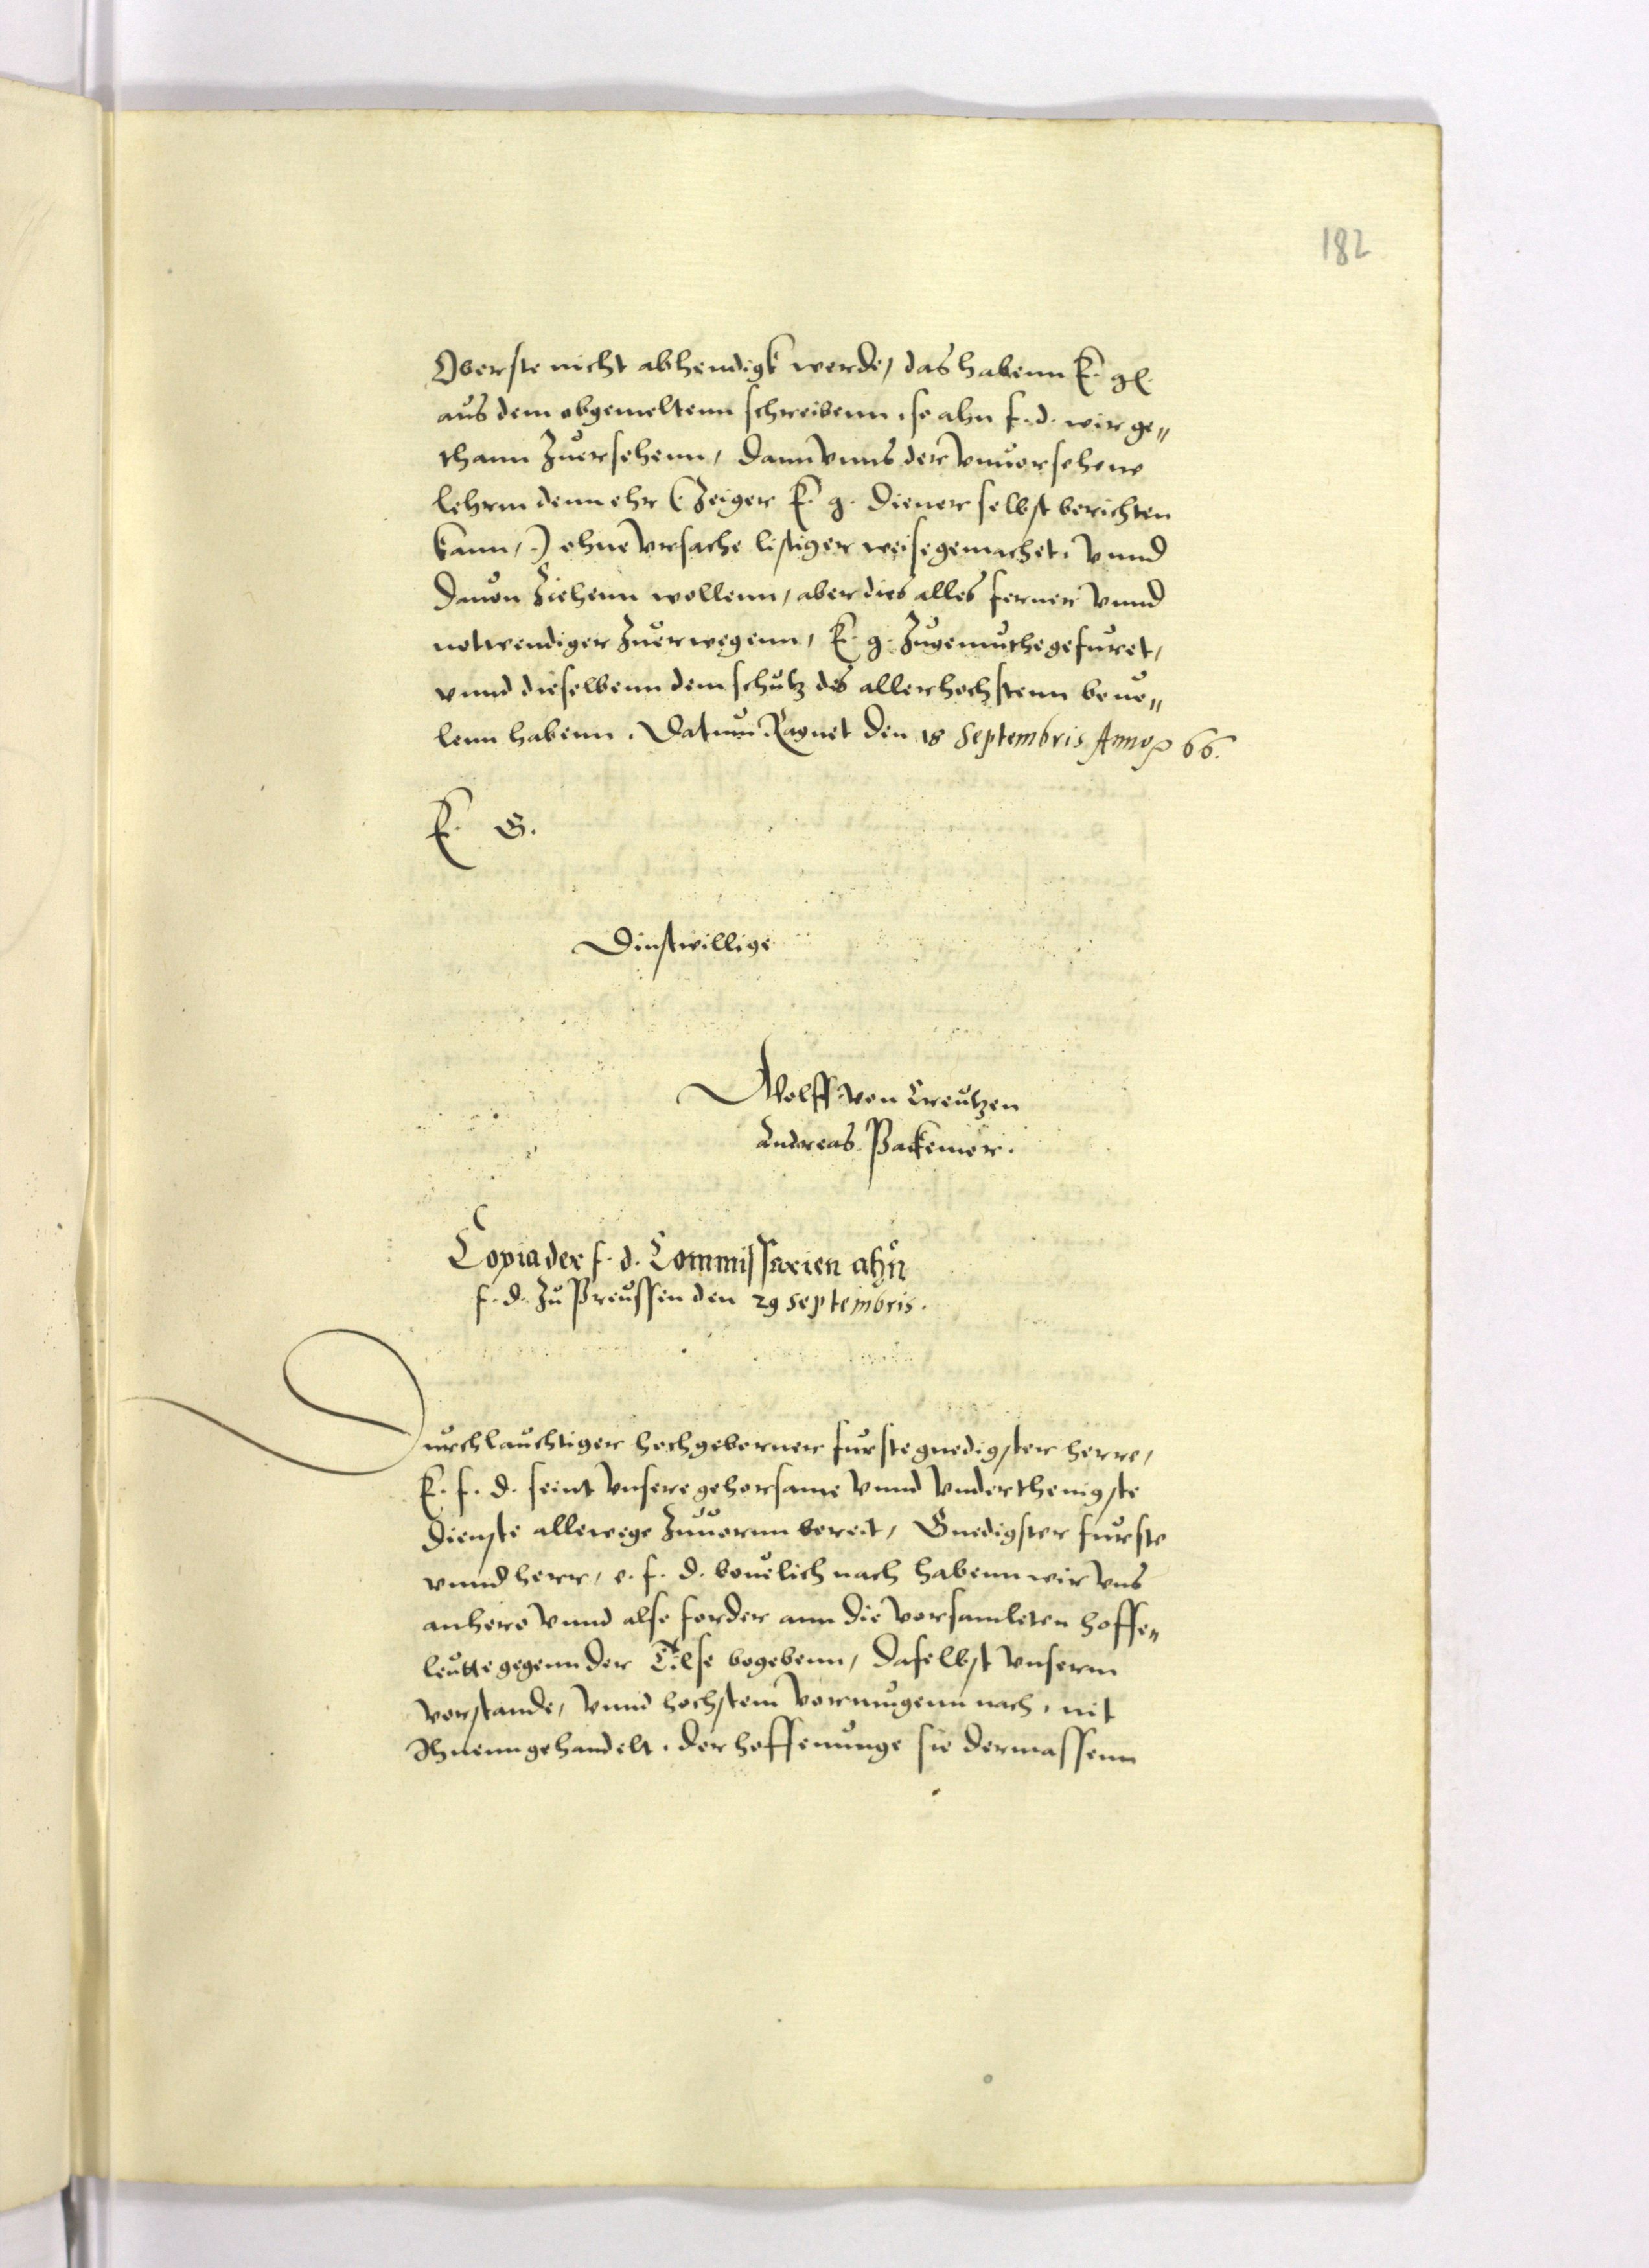 182
Oberste nicht abhendigk werde, das habenn E. gl.
aus dem obgemeltenn schreibenn, so ahn f. d. wir ge„
thann Zuersehenn, dann vnns der vnuorsehene
lehrm denn ehr (: Zeiger E. g. diener selbst berichten
kann, :) ohne vrsache listiger weise gemachet, vnnd
dauon Ziehenn wollenn, aber dies alles ferner vnnd
notwendiger Zuerwegenn, E. g. Zugemuthe gefuret,
vnnd dieselbenn dem schutz des allerhochstenn beue„
lenn habenn. Datum Ragnet den 18 Septembris Anno 66.
E. G.
Dinstwillige
Wolff von Creutzen
Andreas Packemor.
Copia der f. d. Commissarien ahn
f. d. Zu Preussen den 29 Septembris.
Durchlauchtiger hochgeborner furste gnedigster herre,
E. f. d. seint vnsere gehorsame vnnd vnderthenigste
dienste allewege Zuuornn bereit, Gnedigster furste
vnnd herr, e. f. d. beuelich nach habenn wir vns
anhero vnnd also forder ann die vorsamleten hoffe„
leutte gegenn der Tilse begebenn, daselbst vnserm
vorstande, vnnd hochstem vormugenn nach, mit
Ihnenn gehandelt, der hoffenunge sie dermassenn